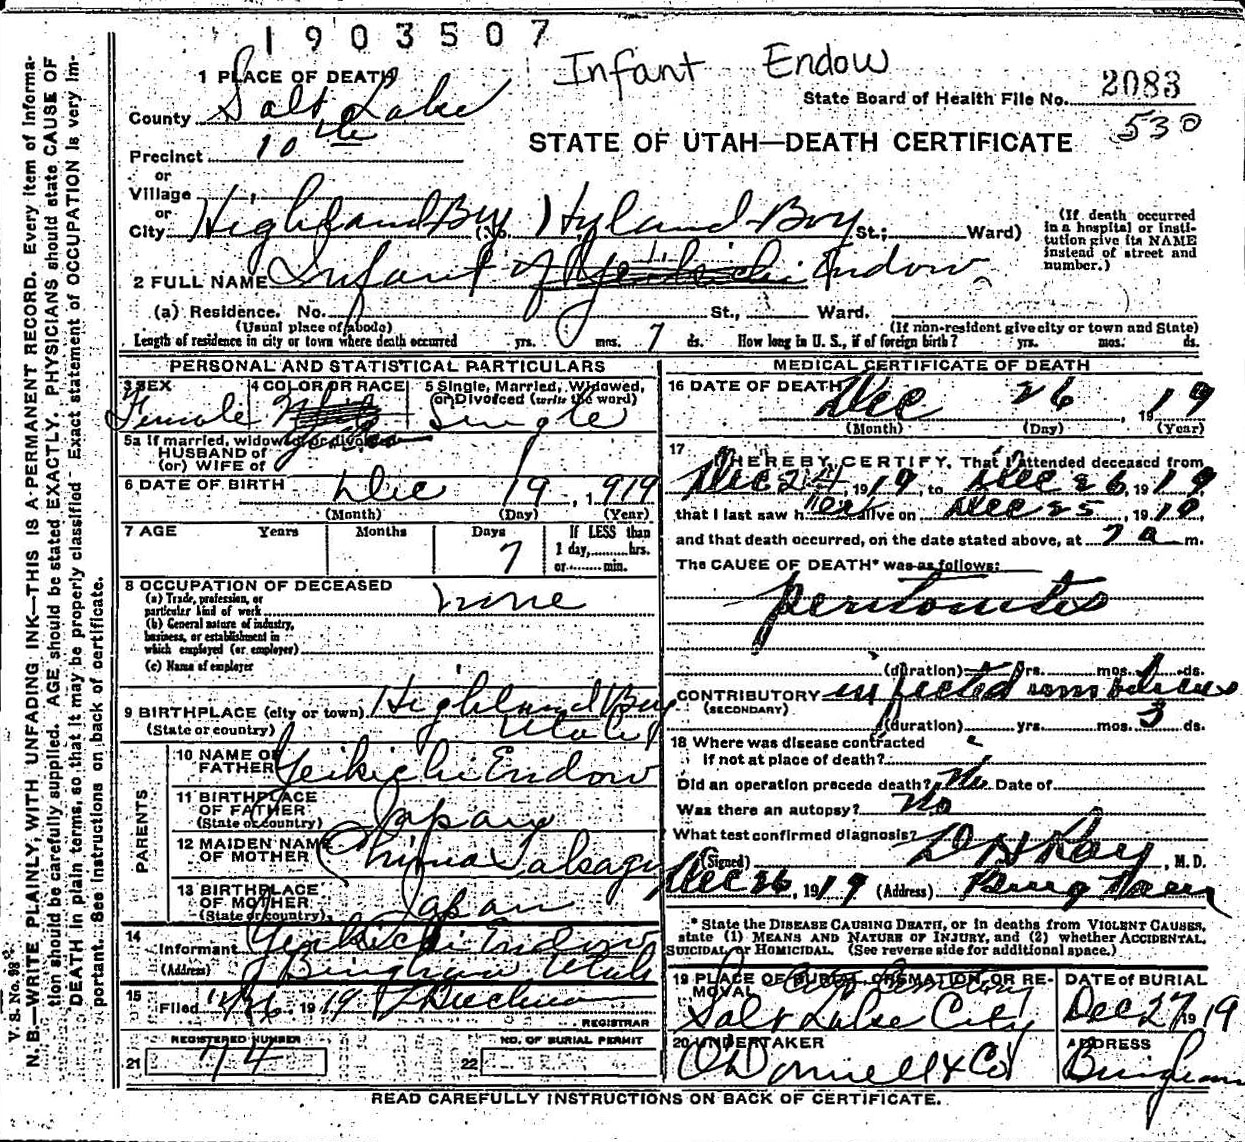 1903507
Infant Endow
1 PLACE OF DEATH
State Board of Health File No. 2083
530
County Salt Lake
STATE OF UTAH—DEATH CERTIFICATE
Precinct 10th
or
Village
or
City Highland Boy (No. Hyland Boy St.; Ward)
(If death occurred in a hospital or institution give its NAME instead of street and number.)
2 FULL NAME Infant of Endow
(a) Residence. No. St., Ward.
(Usual place of abode) (If non-resident give city or town and State)
Length of residence in city or town where death occurred yrs. mos. 7 ds. How long in U. S., if of foreign birth? yrs. mos. ds.
PERSONAL AND STATISTICAL PARTICULARS
3 SEX 4 COLOR OR RACE 5 Single, Married, Widowed, or Divorced (write the word)
Female Single
5a If married, widowed, or divorced
HUSBAND of
(or) WIFE of
6 DATE OF BIRTH Dec 19, 1919
(Month) (Day) (Year)
7 AGE Years Months Days If LESS than
7 1 day, hrs.
or min.
8 OCCUPATION OF DECEASED
(a) Trade, profession, or
particular kind of work none
(b) General nature of industry,
business, or establishment in
which employed (or employer)
(c) Name of employer
9 BIRTHPLACE (city or town) Highland Boy
(State or country) Utah
PARENTS
10 NAME OF FATHER Yeikichi Endow
11 BIRTHPLACE OF FATHER (State or country) Japan
12 MAIDEN NAME OF MOTHER
13 BIRTHPLACE OF MOTHER (State or country) Japan
14 Informant Yeikichi Endow
(Address) Bingham Utah
15 Filed 1919
REGISTRAR
REGISTERED NUMBER NO. OF BURIAL PERMIT
21 74 22
MEDICAL CERTIFICATE OF DEATH
16 DATE OF DEATH Dec 26, 1919
(Month) (Day) (Year)
17 I HEREBY CERTIFY, That I attended deceased from
Dec 24, 1919, to Dec 26, 1919
that I last saw her alive on Dec 25, 1919,
and that death occurred, on the date stated above, at 7 a m.
The CAUSE OF DEATH* was as follows:
peritonitis
(duration) yrs. mos. 1 ds.
CONTRIBUTORY infected umbilicus
(SECONDARY)
(duration) yrs. mos. 3 ds.
18 Where was disease contracted
if not at place of death?
Did an operation precede death? No Date of
Was there an autopsy? No
What test confirmed diagnosis?
(Signed) D H Ray, M. D.
Dec 26, 1919 (Address) Bingham
* State the DISEASE CAUSING DEATH, or in deaths from VIOLENT CAUSES,
state (1) MEANS AND NATURE OF INJURY, and (2) whether ACCIDENTAL,
SUICIDAL or HOMICIDAL. (See reverse side for additional space.)
19 PLACE OF BURIAL, CREMATION, OR REMOVAL DATE OF BURIAL
Salt Lake City Dec 27 1919
20 UNDERTAKER ADDRESS
O'Donnell & Co Bingham
READ CAREFULLY INSTRUCTIONS ON BACK OF CERTIFICATE.
V. S. No. 98
N. B.—WRITE PLAINLY, WITH UNFADING INK—THIS IS A PERMANENT RECORD. Every item of information should be carefully supplied. AGE should be stated EXACTLY. PHYSICIANS should state CAUSE OF DEATH in plain terms, so that it may be properly classified. Exact statement of OCCUPATION is very important. See instructions on back of certificate.